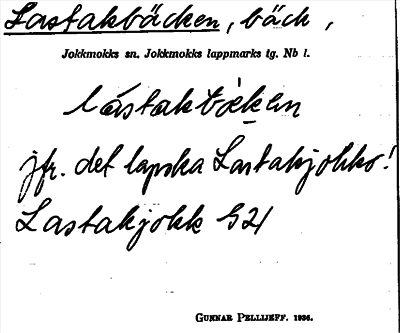 Lastakbäcken, bäck,
Jokkmokks sn. Jokkmokks lappmarks tg. Nb l.
lástakbèken
jfr. det lapska Lastakjokko!
Lastakjokk G21
GUNNAR PELLIJEFF. 1936.